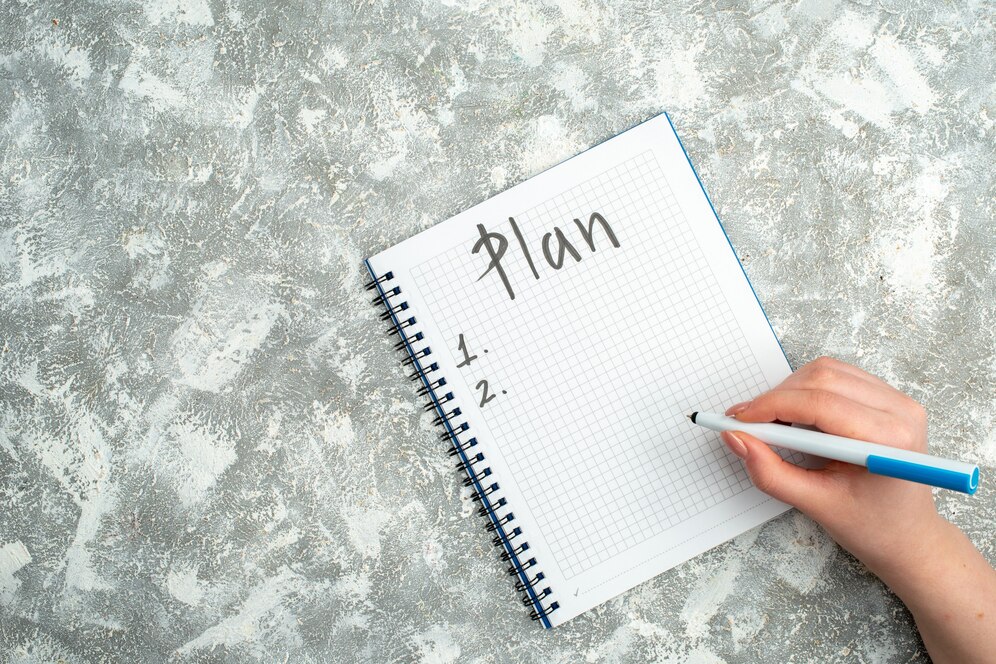 Plan
1.
2.